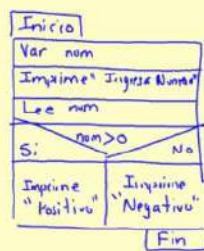 Inicio
Var nom
Imprime "Ingresa Numero"
Lee num
num>0
Si No
Imprime Imprime
"Positivo" "Negativo"
Fin